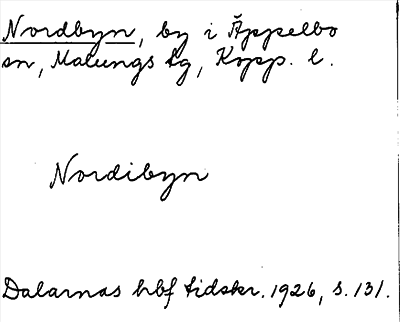 Nordbyn, by i Äppelbo
sn, Malungs tg, Kopp. l.
Nordibyn
Dalarnas hbf tidskr. 1926, s. 131.